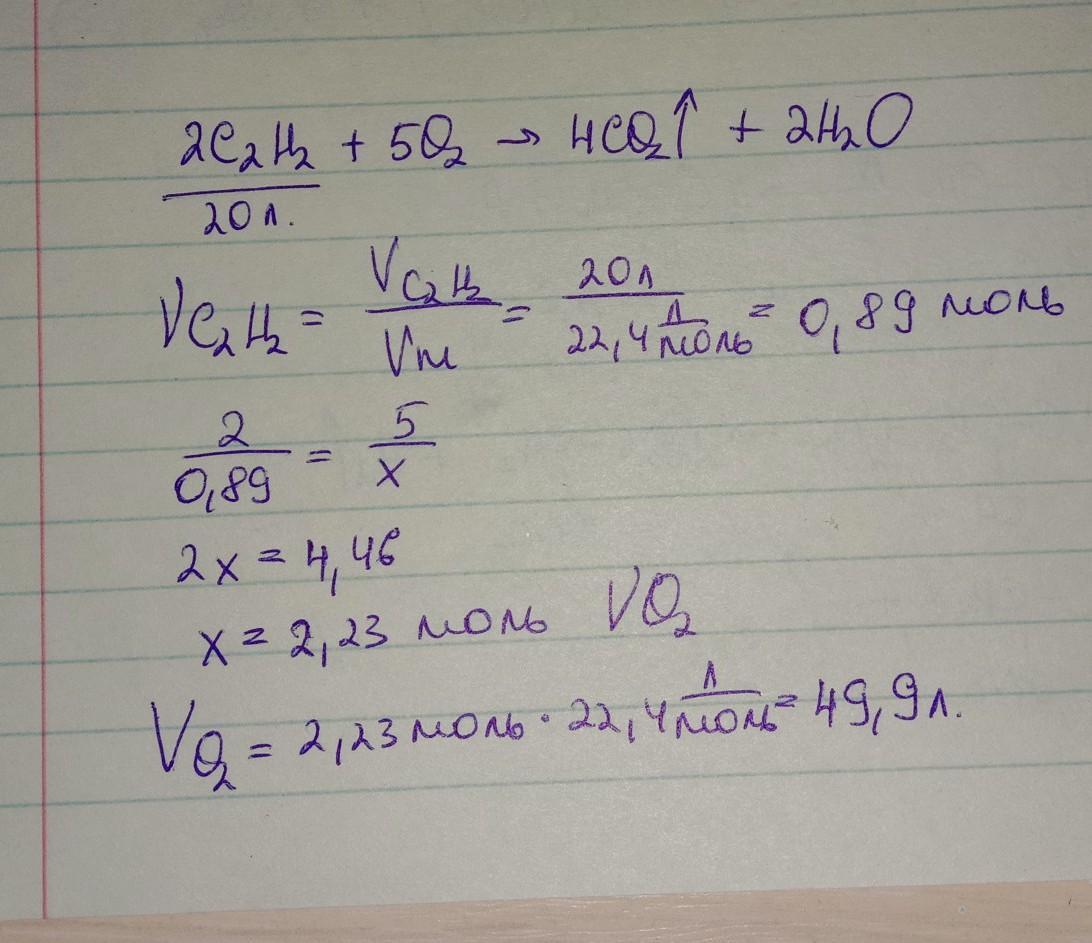 2C₂H₂ + 5O₂ → 4CO₂↑ + 2H₂O
20 л.
νC₂H₂ = V C₂H₂ / Vm = 20л / 22,4 л/моль = 0,89 моль
2 / 0,89 = 5 / x
2x = 4,46
x = 2,23 моль νO₂
VO₂ = 2,23 моль · 22,4 л/моль = 49,9 л.